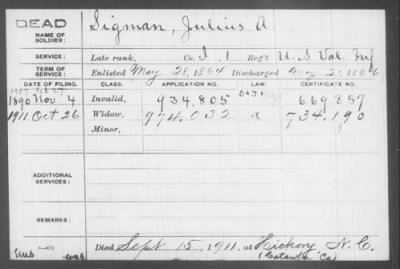 DEAD
NAME OF SOLDIER: Sigman, Julius A.
SERVICE: Late rank, Co. I, 1 Reg't U.S. Vol. Inf
TERM OF SERVICE: Enlisted May 28, 1864 Discharged May 21, 1866
DATE OF FILING. CLASS. APPLICATION NO. LAW CERTIFICATE NO.
1907 Feb 27
1890 Nov. 4 Invalid, 934.805 669.857
1911 Oct 26 Widow, 974.032 a 734.190
Minor,
ADDITIONAL SERVICES:
REMARKS:
Died Sept 15, 1911, at Hickory N.C.
(Catawba Co)